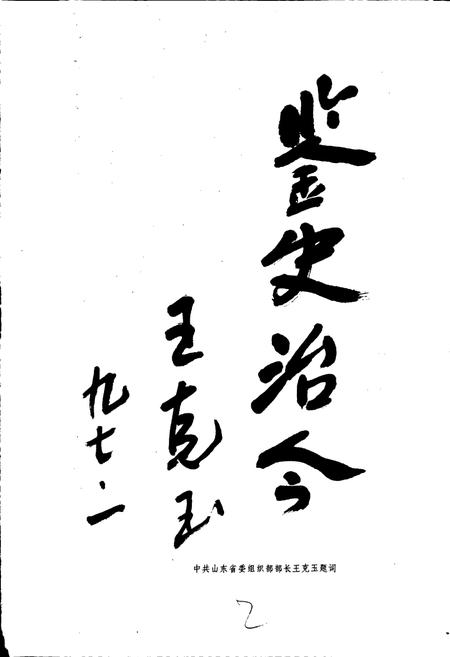 鉴史治今
王克玉
九七·一
中共山东省委组织部部长王克玉题词
2